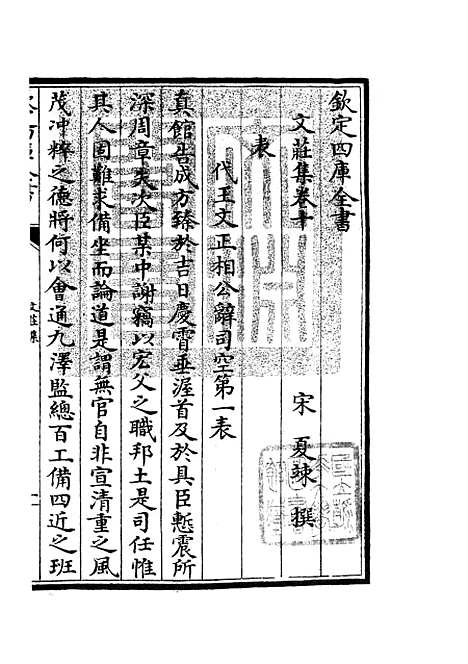 欽定四庫全書
文莊集卷十
宋 夏竦 撰
表
代王文正相公辭司空第一表
真館告成方臻於吉日慶霄垂渥首及於具臣慙震所
深周章失次臣某中謝竊以宏父之職邦土是司任惟
其人固難求備坐而論道是謂無官自非宣清重之風
茂冲粹之德將何以會通九澤監總百工備四近之班
文莊集